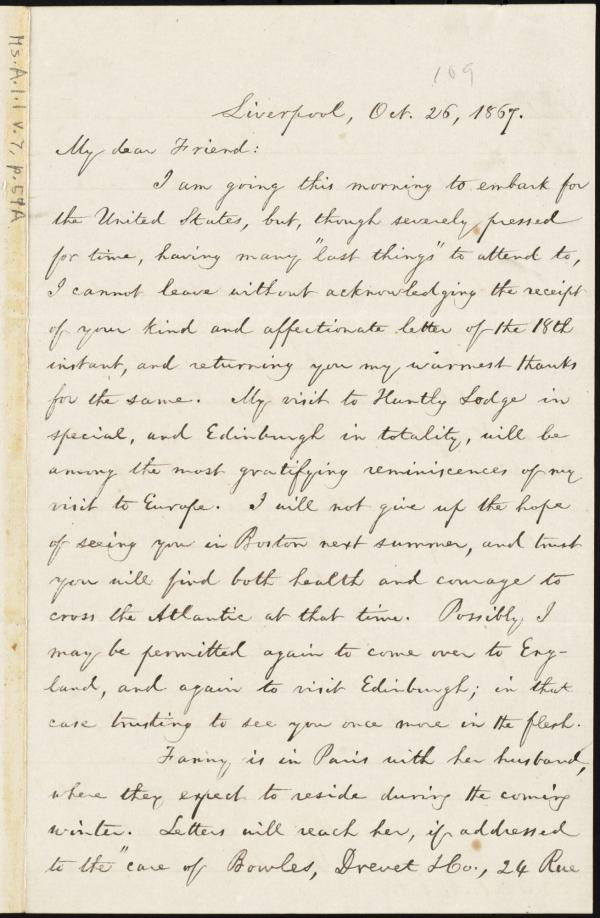 Ms.A.1.1 v.7, p.59A
109
Liverpool, Oct. 26, 1867.
My dear Friend:
I am going this morning to embark for
the United States, but, though severely pressed
for time, having many "last things" to attend to,
I cannot leave without acknowledging the receipt
of your kind and affectionate letter of the 18th
instant, and returning you my warmest thanks
for the same. My visit to Huntly Lodge in
special, and Edinburgh in totality, will be
among the most gratifying reminiscences of my
visit to Europe. I will not give up the hope
of seeing you in Boston next summer, and trust
you will find both health and courage to
cross the Atlantic at that time. Possibly I
may be permitted again to come over to Eng-
land, and again to visit Edinburgh; in that
case trusting to see you once more in the flesh.
Fanny is in Paris with her husband,
where they expect to reside during the coming
winter. Letters will reach her, if addressed
to the "care of Bowles, Drevet & Co., 24 Rue